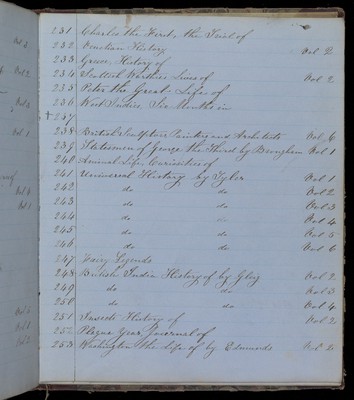 231 Charles the First, the Trial of
232 Venetian History Vol 2
233 Greece, History of
234 Scottish Worthies Lives of Vol 2
235 Peter the Great - Life of
236 West Indies, Six Months in
+ 237
238 British Sculptors Painters and Architects Vol 6
239 Statesmen of George the Third by Brougham Vol 1
240 Animal Life, Curiosities of
241 Universal History by Tyler Vol 1
242 do do Vol 2
243 do do Vol 3
244 do do Vol 4
245 do do Vol 5
246 do do Vol 6
247 Fairy Legends
248 British India History of by Gleig Vol 2
249 do do Vol 3
250 do do Vol 4
251 Insects History of Vol 2
252 Plague Year, Journal of
253 Washington the Life of by Edmonds Vol 2